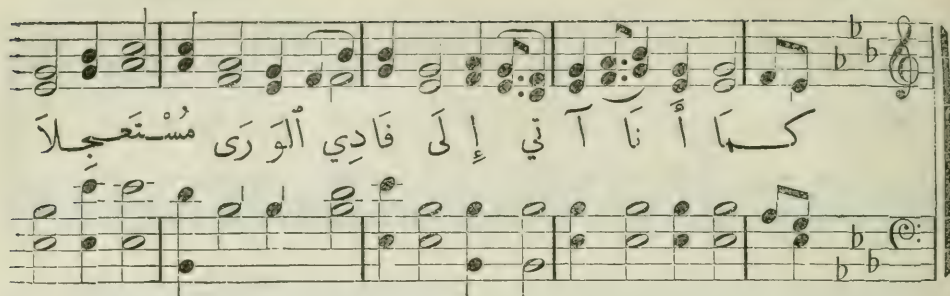 كَمَا أَنَا آتي إِلَى فَادِي ٱلْوَرَى مُسْتَعجِلاَ